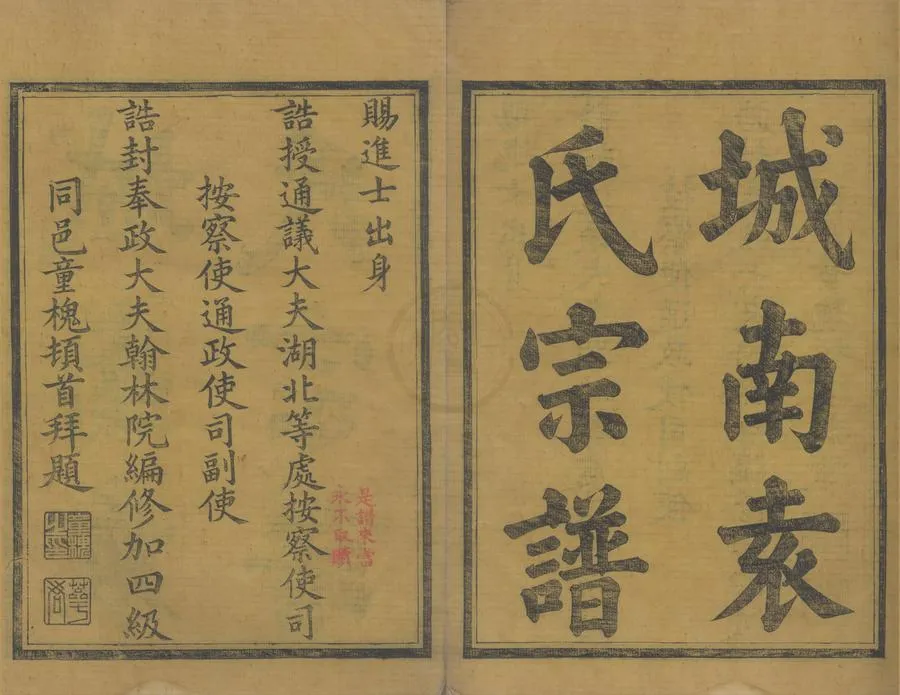 城南袁
氏宗譜
賜進士出身
誥授通議大夫湖北等處按察使司
按察使通政使司副使
誥封奉政大夫翰林院編修加四級
同邑童槐頓首拜題
永不取贖